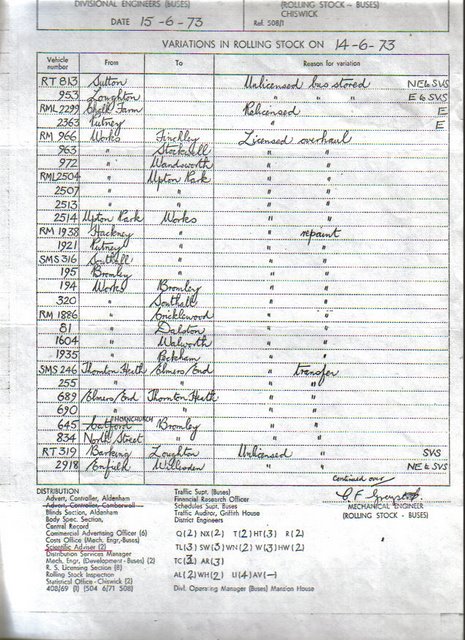 DIVISIONAL ENGINEERS (BUSES) (ROLLING STOCK - BUSES)
CHISWICK
DATE 15-6-73 Ref. 508/1
VARIATIONS IN ROLLING STOCK ON 14-6-73
Vehicle number From To Reason for variation
RT 813 Sutton Unlicensed bus stored NE to SVS
953 Loughton " " " E to SVS
RML 2299 Chalk Farm Relicensed E
2363 Putney " E
RM 966 Works Finchley Licensed overhaul
963 " Stockwell " "
972 " Wandsworth " "
RML 2504 " Upton Park " "
2507 " " " "
2513 " " " "
2514 Upton Park Works " "
RM 1938 Hackney " " repaint
1921 Putney " " "
SMS 316 Southall " " "
195 Bromley " " "
194 Works Bromley " "
320 " Southall " "
RM 1886 " Cricklewood " "
81 " Dalston " "
1604 " Walworth " "
1935 " Peckham " "
SMS 246 Thornton Heath Elmers End " transfer
255 " " " "
689 Elmers End Thornton Heath " "
690 " " " "
645 Catford HORNCHURCH Bromley " "
834 North Street " " "
RT 319 Barking Loughton Unlicensed " SVS
2918 Enfield Willesden " " NE to SVS
Continued over
DISTRIBUTION
Advert, Controller, Aldenham
Advert, Controller, Camberwell
Blinds Section, Aldenham
Body Spec. Section,
Central Record
Commercial Advertising Officer (6)
Costs Office (Mech. Engr-Buses)
Scientific Adviser (2)
Distribution Services Manager
Mech. Engr, (Development-Buses) (2)
R. S. Licensing Section (8)
Rolling Stock Inspection
Statistical Office - Chiswick (2)
408/69 (1) (504 6/71 508)
Traffic Supt. (Buses)
Financial Research Officer
Schedules Supt. Buses
Traffic Auditor, Griffith House
District Engineers
Q(2) NX(2) T(2) HT(3) R(2)
TL(3) SW(3) WN(2) W(3) HW(2)
TC(3) AR(3)
AL(2) WH(2) U(4) AV(-)
Divl. Operating Manager (Buses) Mansion House
MECHANICAL ENGINEER
(ROLLING STOCK - BUSES)